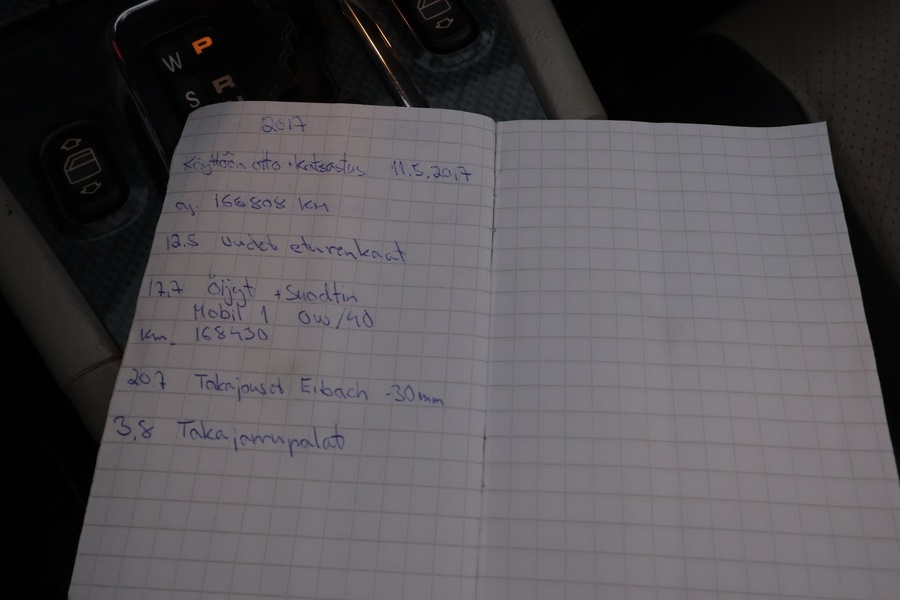 W P
S R
2017
Käyttöön otto + katsastus 11.5.2017
aj. 166808 km
12.5 uudet eturenkaat
17.7 Öijyt + Suodtin
Mobil 1 0w/40
km. 168430
20.7 Takajouset Eibach -30mm
3.8 Takajarrupalat